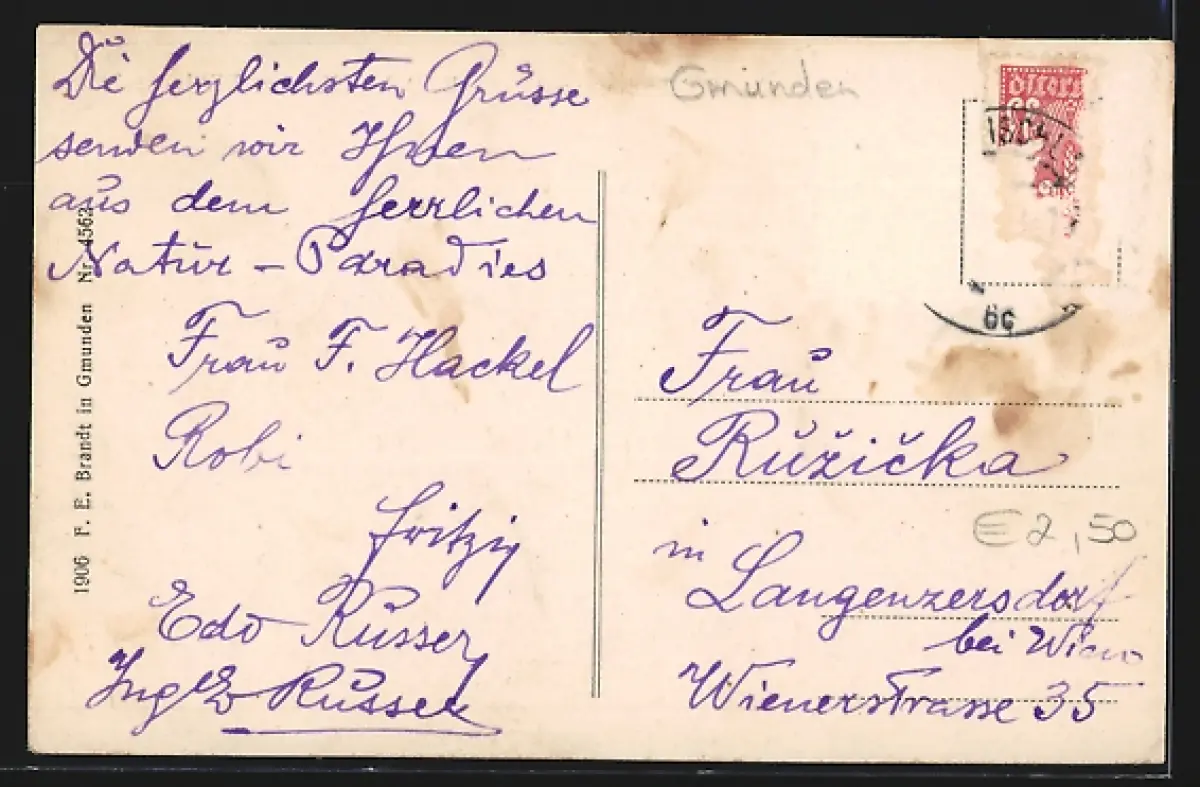 Die herzlichsten Grüsse
senden wir Ihnen
aus dem herrlichen
Natur - Paradies
Frau F. Hackel
Robi
Fritzi
Edo Russer
Ing Russer
1906 F. E. Brandt in Gmunden Nr. 4562
Gmunden
Frau
Růžička
in
Langenzersdorf
bei Wien
Wienerstrasse 35
€ 2,50